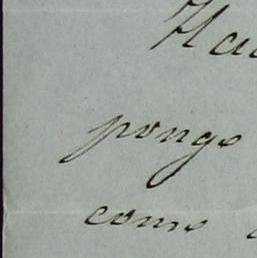 Hau
pongo
como